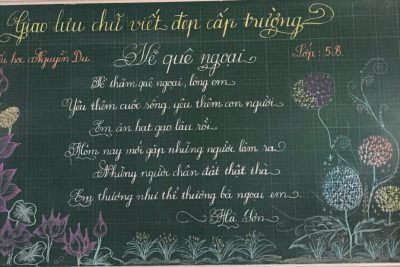 Giao lưu chữ viết đẹp cấp trường
học Nguyễn Du
Lớp: 5.B.
Về quê ngoại
Về thăm quê ngoại, lòng em
Yêu thêm cuộc sống, yêu thêm con người
Em ăn hạt gạo lâu rồi
Hôm nay mới gặp những người làm ra
Những người chân đất thật thà
Em thương như thể thương bà ngoại em.
Hà Sơn